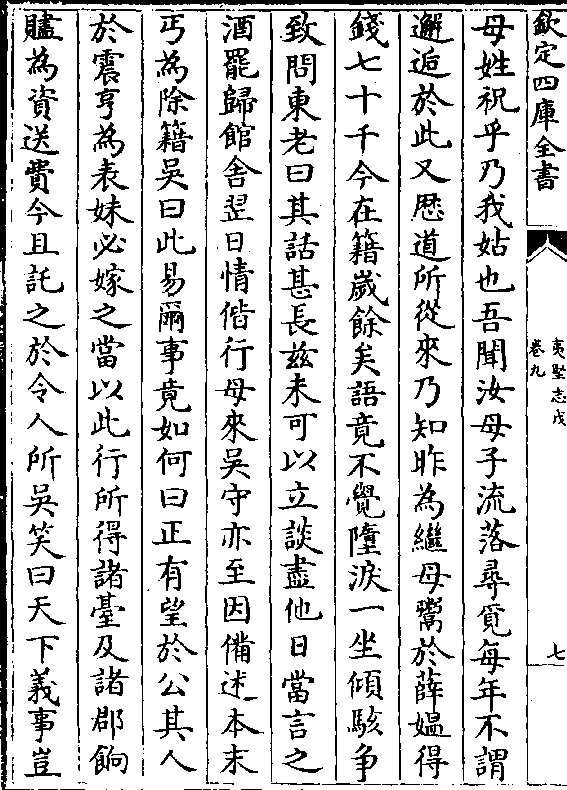 欽定四庫全書
夷堅志戊
卷九
七
母姓祝乎乃我姑也吾聞汝母子流落尋覓每年不謂
邂逅於此又歴道所從來乃知昨為繼母鬻於薛媪得
錢七十千今在籍嵗餘矣語竟不覺墮淚一坐傾駭争
致問東老曰其話甚長兹未可以立談盡他日當言之
酒罷歸館舎翌日情偕行母來吳守亦至因備述本末
丐為除籍吳曰此易爾事竟如何曰正有望於公其人
於震亨為表妹必嫁之當以此行所得諸臺及諸郡餉
贐為資送費今且託之於令人所吳笑曰天下義事豈